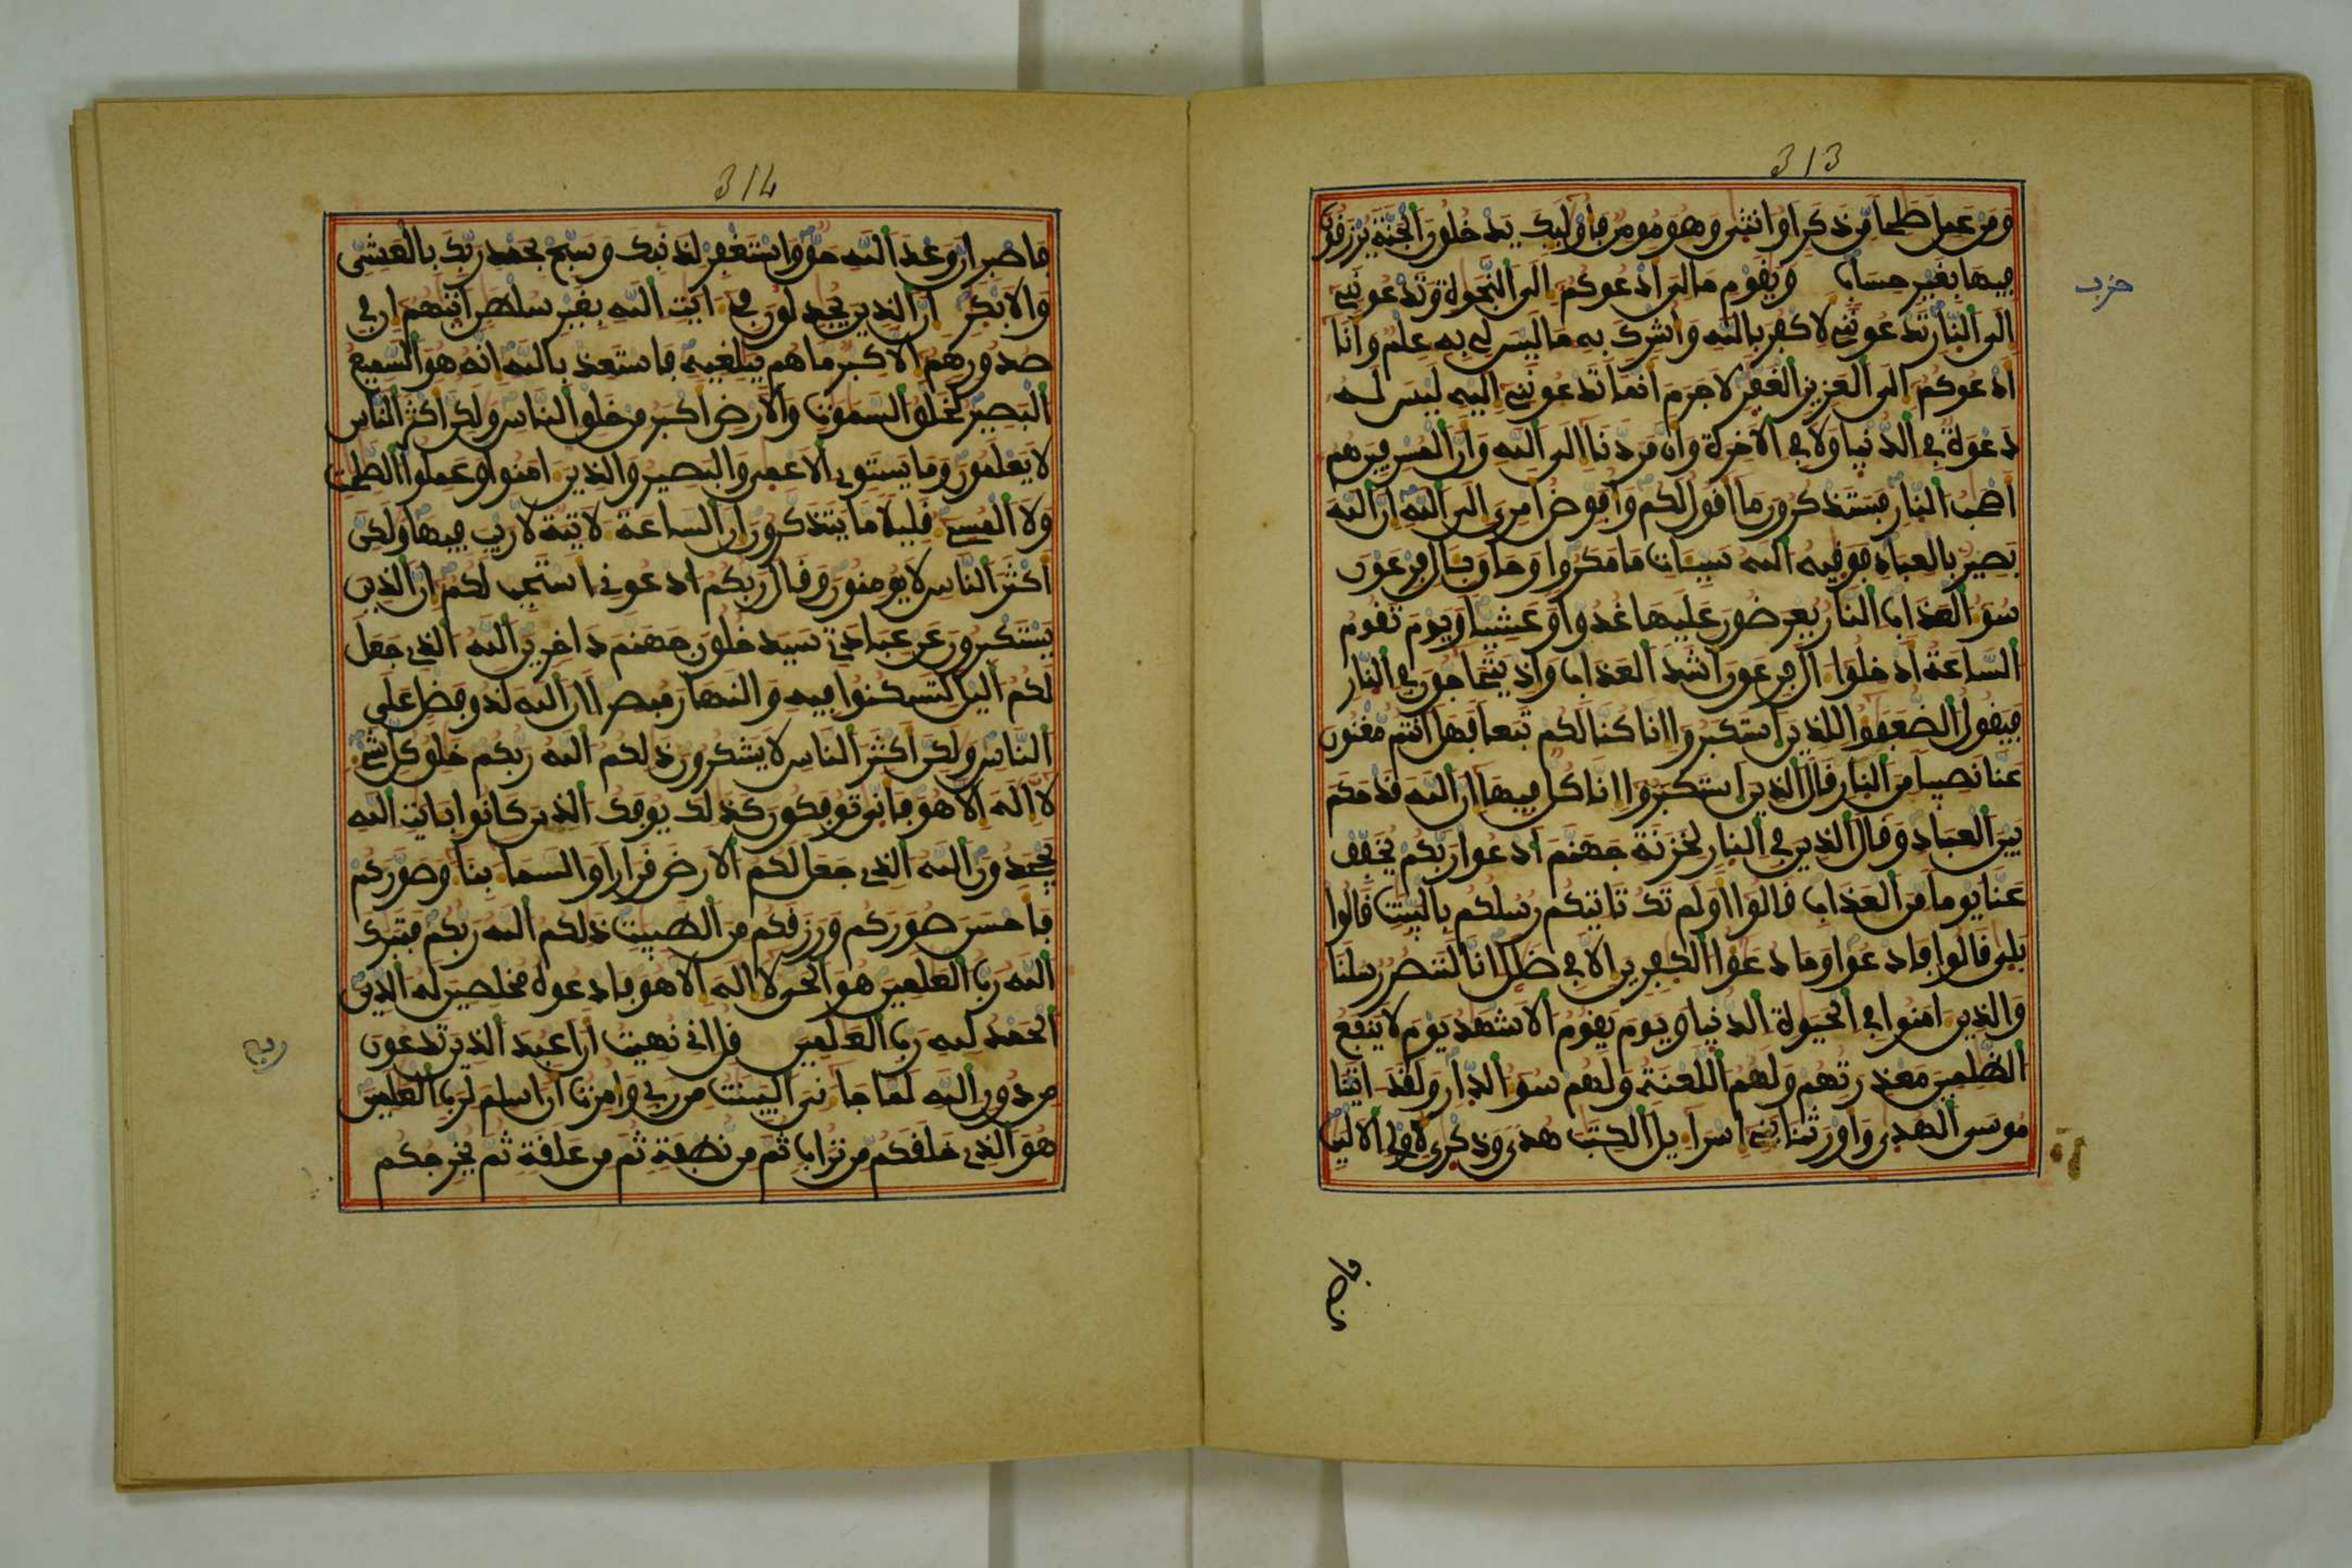 313
ومن عمل صلحا من ذكر او انثى وهو مومن فاوليك يدخلون الجنة يرزقون
فيها بغير حساب ويقوم مالى ادعوكم الى النجوة وتدعوننى
حزب
الى النار تدعوننى لاكفر بالله واشرك به ما ليس لى به علم وانا
ادعوكم الى العزيز الغفر لا جرم انما تدعوننى اليه ليس له
دعوة فى الدنيا ولا فى الاخرة وان مردنا الى الله وان المسرفين هم
اصحب النار فستذكرون ما افول لكم وافوض امرى الى الله ان الله
بصير بالعباد فوفيه الله سيات ما مكروا وحاق بال فرعون
سو العذاب النار يعرضون عليها غدوا وعشيا ويوم تفوم
الساعة ادخلوا ال فرعون اشد العذاب واذ يتحاجون فى النار
فيفول الضعفوا للذين استكبروا انا كنا لكم تبعا فهل انتم مغنون
عنا نصيبا من النار فال الذين استكبروا انا كل فيها ان الله فد حكم
بين العباد وفال الذين فى النار لخزنة جهنم ادعوا ربكم يخفف
عنا يوما من العذاب فالوا اولم تك تاتيكم رسلكم بالبينت فالوا
بلى فالوا فادعوا وما دعوا الكفرين الا فى ضلل انا لننصر رسلنا
والذين امنوا فى الحيوة الدنيا ويوم يفوم الاشهد يوم لا ينفع
الظلمين معذرتهم ولهم اللعنة ولهم سو الدار ولفد اتينا
موسى الهدى واورثنا بنى اسرايل الكتب هدى وذكرى لاولى الالبب
فاصبر
314
فاصبر ان وعد الله حق واستغفر لذنبك وسبح بحمد ربك بالعشى
والابكر ان الذين يجدلون فى ايت الله بغير سلطن اتيهم ان فى
صدورهم الا كبر ما هم ببلغيه فاستعذ بالله انه هو السميع
البصير لخلق السموت والارض اكبر من خلق الناس ولكن اكثر الناس
لا يعلمون وما يستوى الاعمى والبصير والذين امنوا وعملوا الصلحت
ولا المسى فليلا ما يتذكرون ان الساعة لاتية لا ريب فيها ولكن
اكثر الناس لا يومنون وفال ربكم ادعونى استجب لكم ان الذين
يستكبرون عن عبادتى سيدخلون جهنم داخرين الله الذى جعل
لكم اليل لتسكنوا فيه والنهار مبصرا ان الله لذو فضل على
الناس ولكن اكثر الناس لا يشكرون ذلكم الله ربكم خلق كل شى
لا اله الا هو فانى توفكون كذلك يوفك الذين كانوا بايت الله
يجحدون الله الذى جعل لكم الارض فرارا والسما بنا وصوركم
فاحسن صوركم ورزفكم من الطيبت ذلكم الله ربكم فتبرك
الله رب العلمين هو الحى لا اله الا هو فادعوه مخلصين له الدين
الحمد لله رب العلمين فل انى نهيت ان اعبد الذين تدعون
ربع
من دون الله لما جانى البينت من ربى وامرت ان اسلم لرب العلمين
هو الذى خلفكم من تراب ثم من نطفة ثم من علفة ثم يخرجكم